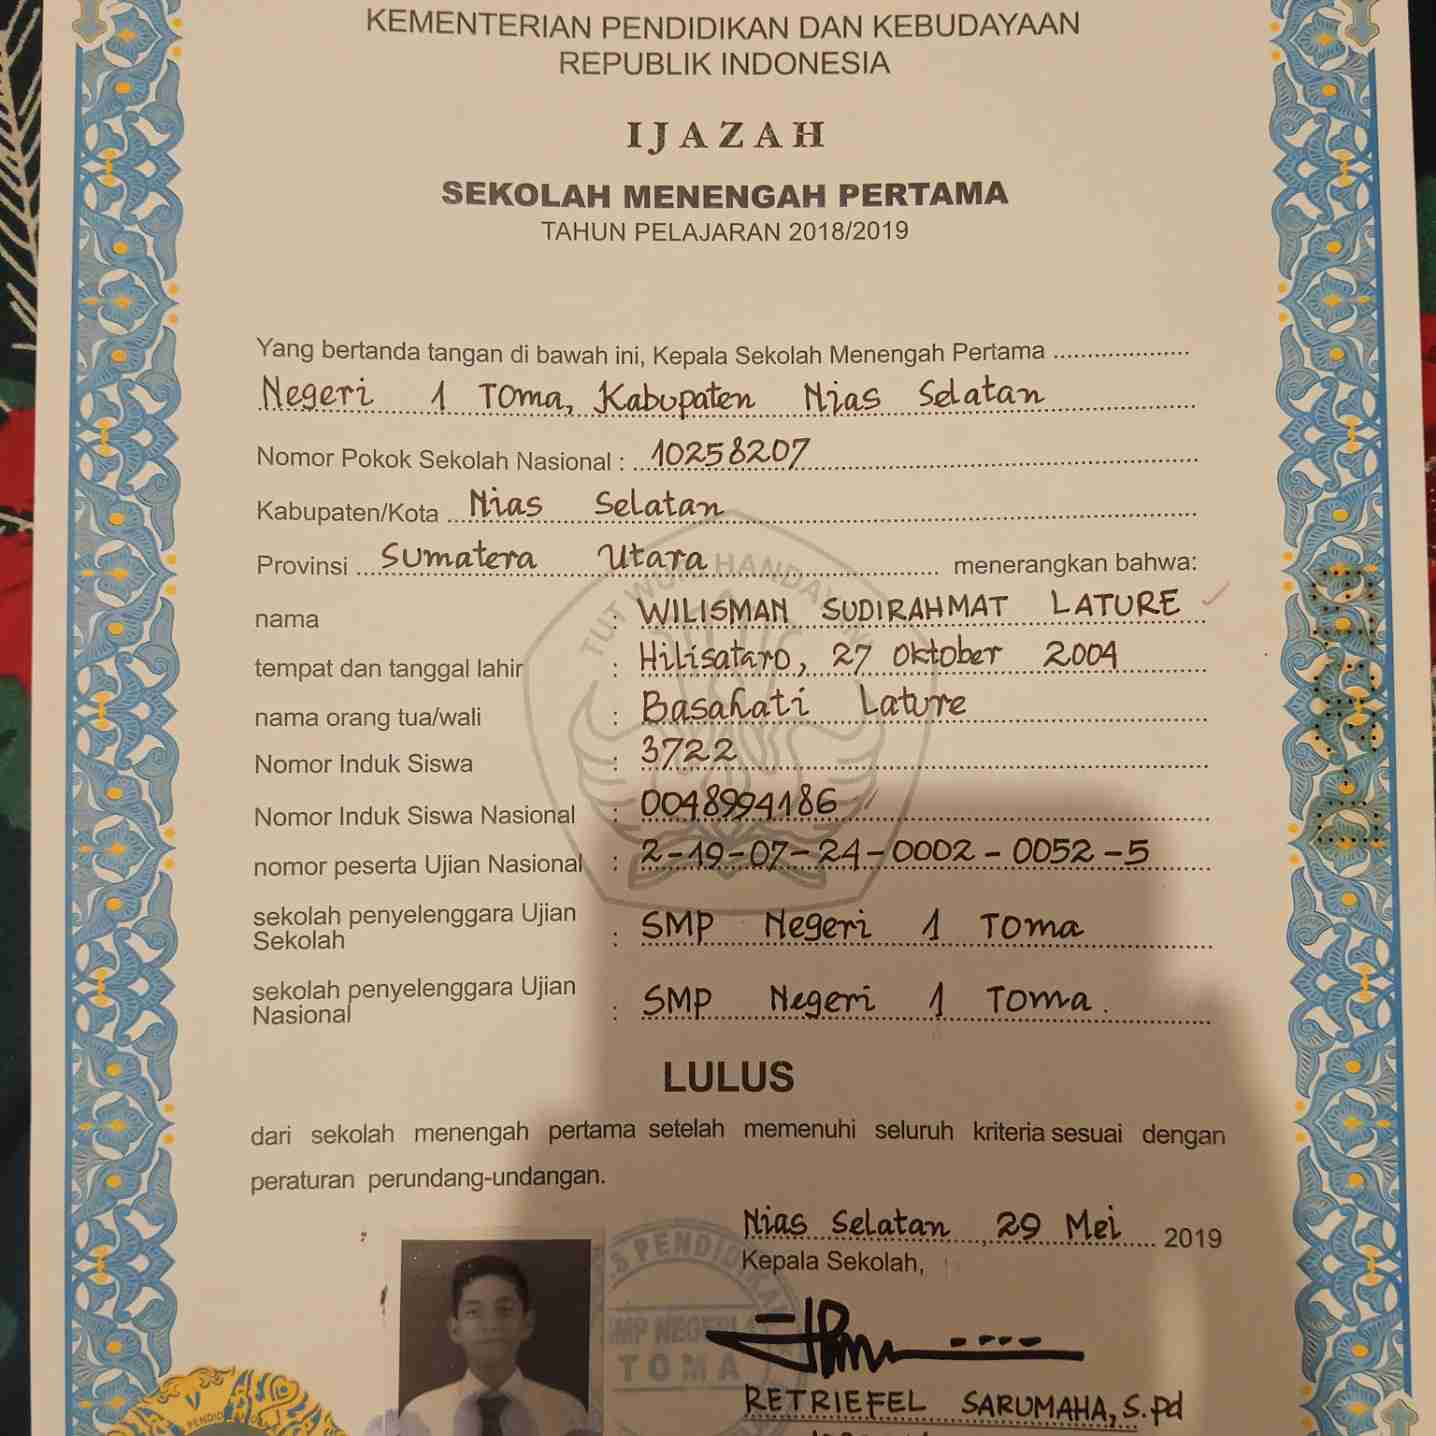 KEMENTERIAN PENDIDIKAN DAN KEBUDAYAAN
REPUBLIK INDONESIA
IJAZAH
SEKOLAH MENENGAH PERTAMA
TAHUN PELAJARAN 2018/2019
Yang bertanda tangan di bawah ini, Kepala Sekolah Menengah Pertama
Negeri 1 Toma, Kabupaten Nias Selatan
Nomor Pokok Sekolah Nasional : 10258207
Kabupaten/Kota Nias Selatan
Provinsi Sumatera Utara menerangkan bahwa:
nama : WILISMAN SUDIRAHMAT LATURE
tempat dan tanggal lahir : Hilisataro, 27 Oktober 2004
nama orang tua/wali : Basahati Lature
Nomor Induk Siswa : 3722
Nomor Induk Siswa Nasional : 0048994186
nomor peserta Ujian Nasional : 2-19-07-24-0002-0052-5
sekolah penyelenggara Ujian
Sekolah : SMP Negeri 1 Toma
sekolah penyelenggara Ujian
Nasional : SMP Negeri 1 Toma.
LULUS
dari sekolah menengah pertama setelah memenuhi seluruh kriteria sesuai dengan
peraturan perundang-undangan.
Nias Selatan, 29 Mei 2019
Kepala Sekolah,
TOMA
RETRIEFEL SARUMAHA, S.Pd